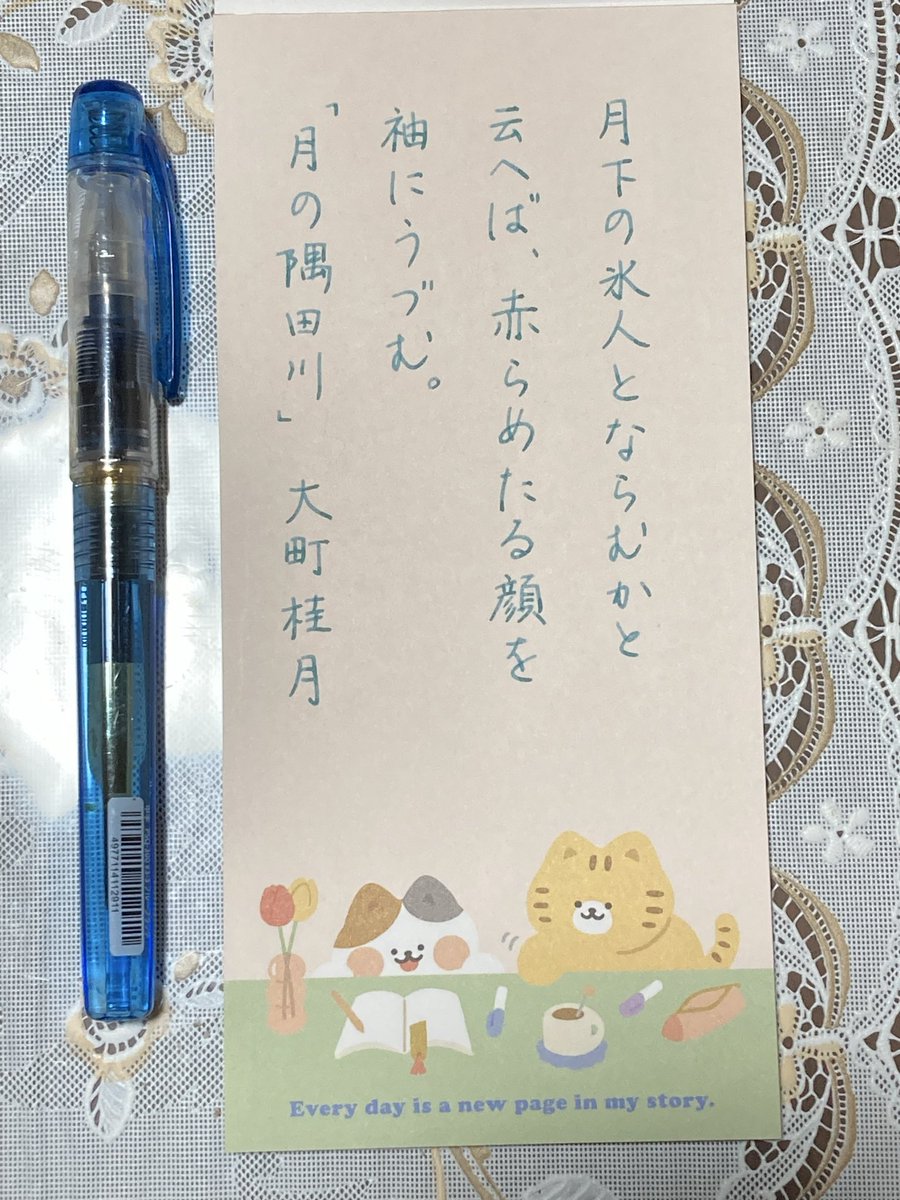 月下の氷人とならむかと
云へば、赤らめたる顔を
袖にうづむ。
「月の隅田川」 大町桂月
Every day is a new page in my story.
4977114120811